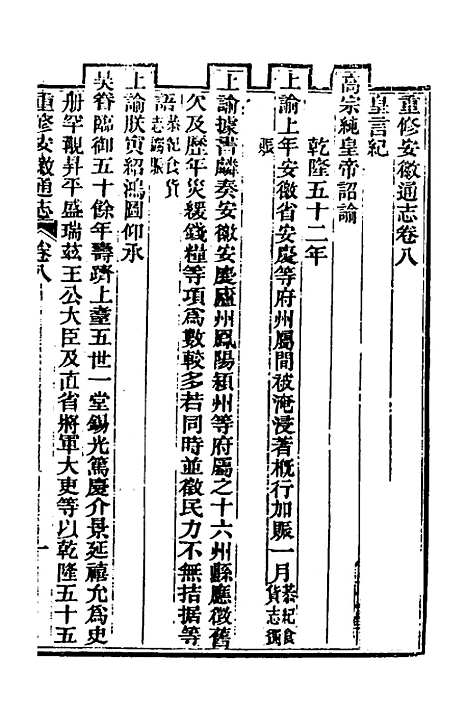 重修安徽通志卷八
皇言紀
高宗純皇帝詔諭
乾隆五十二年
上諭上年安徽省安慶等府州屬間被淹浸著概行加賑一月恭紀食貨志蠲
賑
上諭據書麟奏安徽安慶廬州鳳陽潁州等府屬之十六州縣應徵舊
欠及歷年災緩錢糧等項為數較多若同時並徵民力不無拮据等
語恭紀食貨志蠲賑
上諭朕寅紹鴻圖仰承
昊眷臨御五十餘年壽躋上耋五世一堂錫光篤慶介景延禧允為史
册罕觀昇平盛瑞茲王公大臣及直省將軍大吏等以乾隆五十五
重修安徽通志 卷八 一